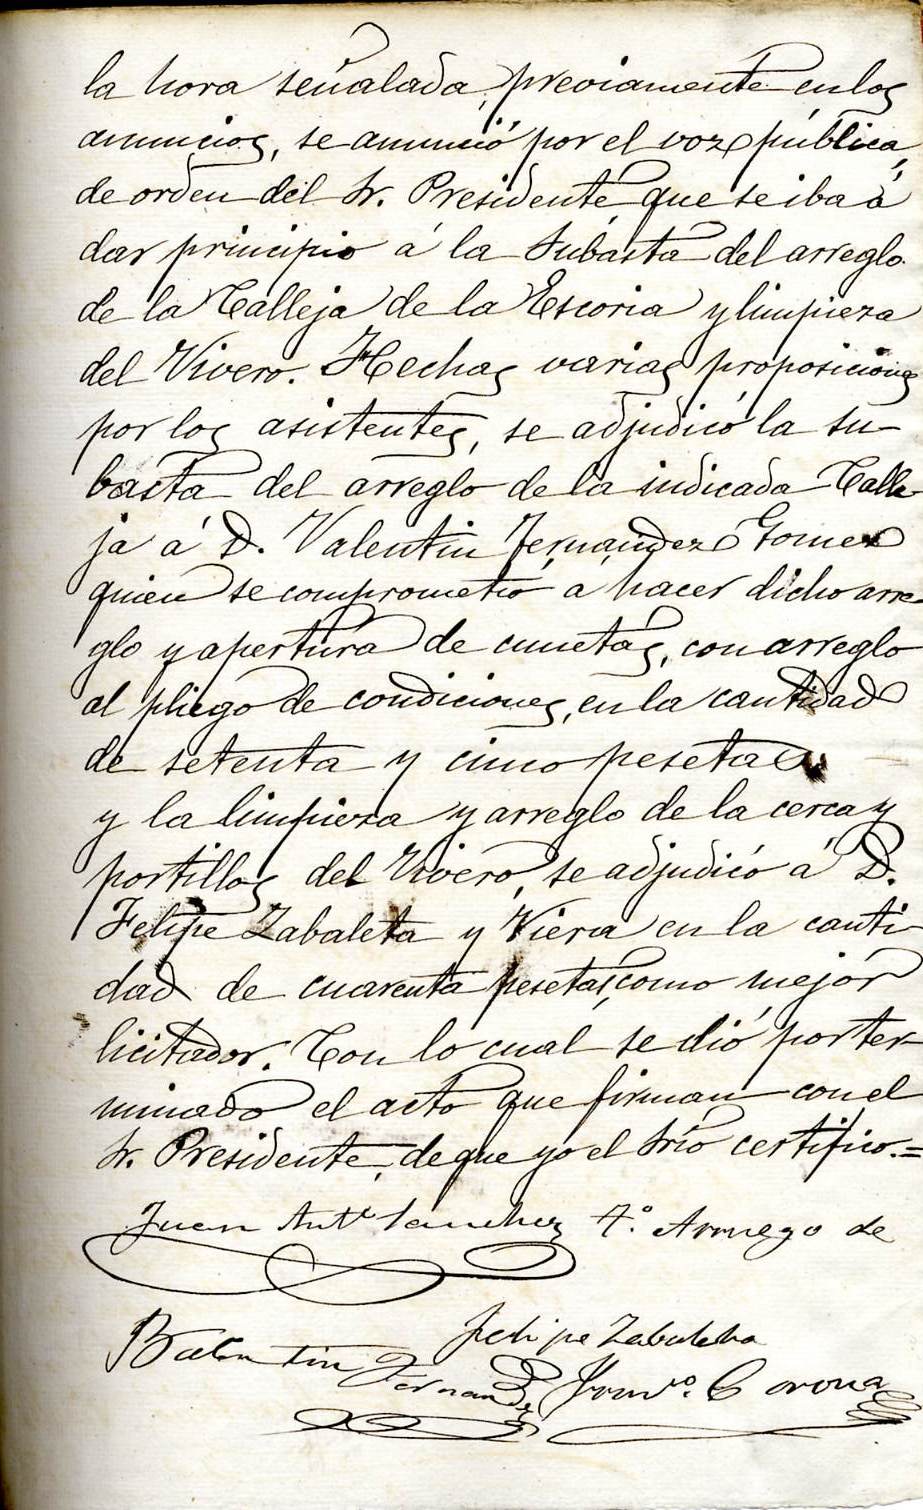 la hora señalada, previamente en los
anuncios, se anunció por el voz pública,
de orden del Sr. Presidente que se iba á
dar principio á la Subasta del arreglo
de la Calleja de la Escoria y limpieza
del Vivero. Hechas varias proposiciones
por los asistentes, se adjudicó la su-
basta del arreglo de la indicada Calle-
ja á D. Valentin Fernandez Gomez
quien se comprometió á hacer dicho arre-
glo y apertura de cunetas, con arreglo
al pliego de condiciones, en la cantidad
de setenta y cinco pesetas
y la limpieza y arreglo de la cerca y
portillos del Vivero, se adjudicó á D.
Felipe Zabaleta y Viera en la canti-
dad de cuarenta pesetas, como mejor
licitador. Con lo cual se dió por ter-
minado el acto que firman con el
Sr. Presidente, de que yo el Srio certifico.=
Juan Antº Sanchez A ruego de
Felipe Zabaleta
Balentin Fernandez Corona